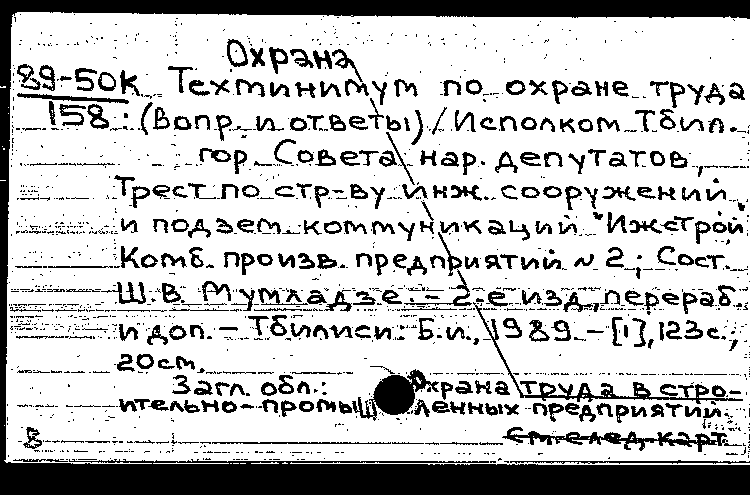 Охрана
89-50к Техминимум по охране труда
158 : (Вопр. и ответы) / Исполком Тбил.
гор. Совета нар. депутатов,
Трест по стр-ву инж. сооружений
и подзем. коммуникаций "Ижстрой"
Комб. произв. предприятий № 2; Сост.
Ш.В. Мумладзе. - 2-е изд., перераб.
и доп. - Тбилиси: Б.и., 1989. - [1], 123 с.,
20 см.
Загл. обл.: Охрана труда в стро-
ительно-промышленных предприятий.
8 см. след. карт.